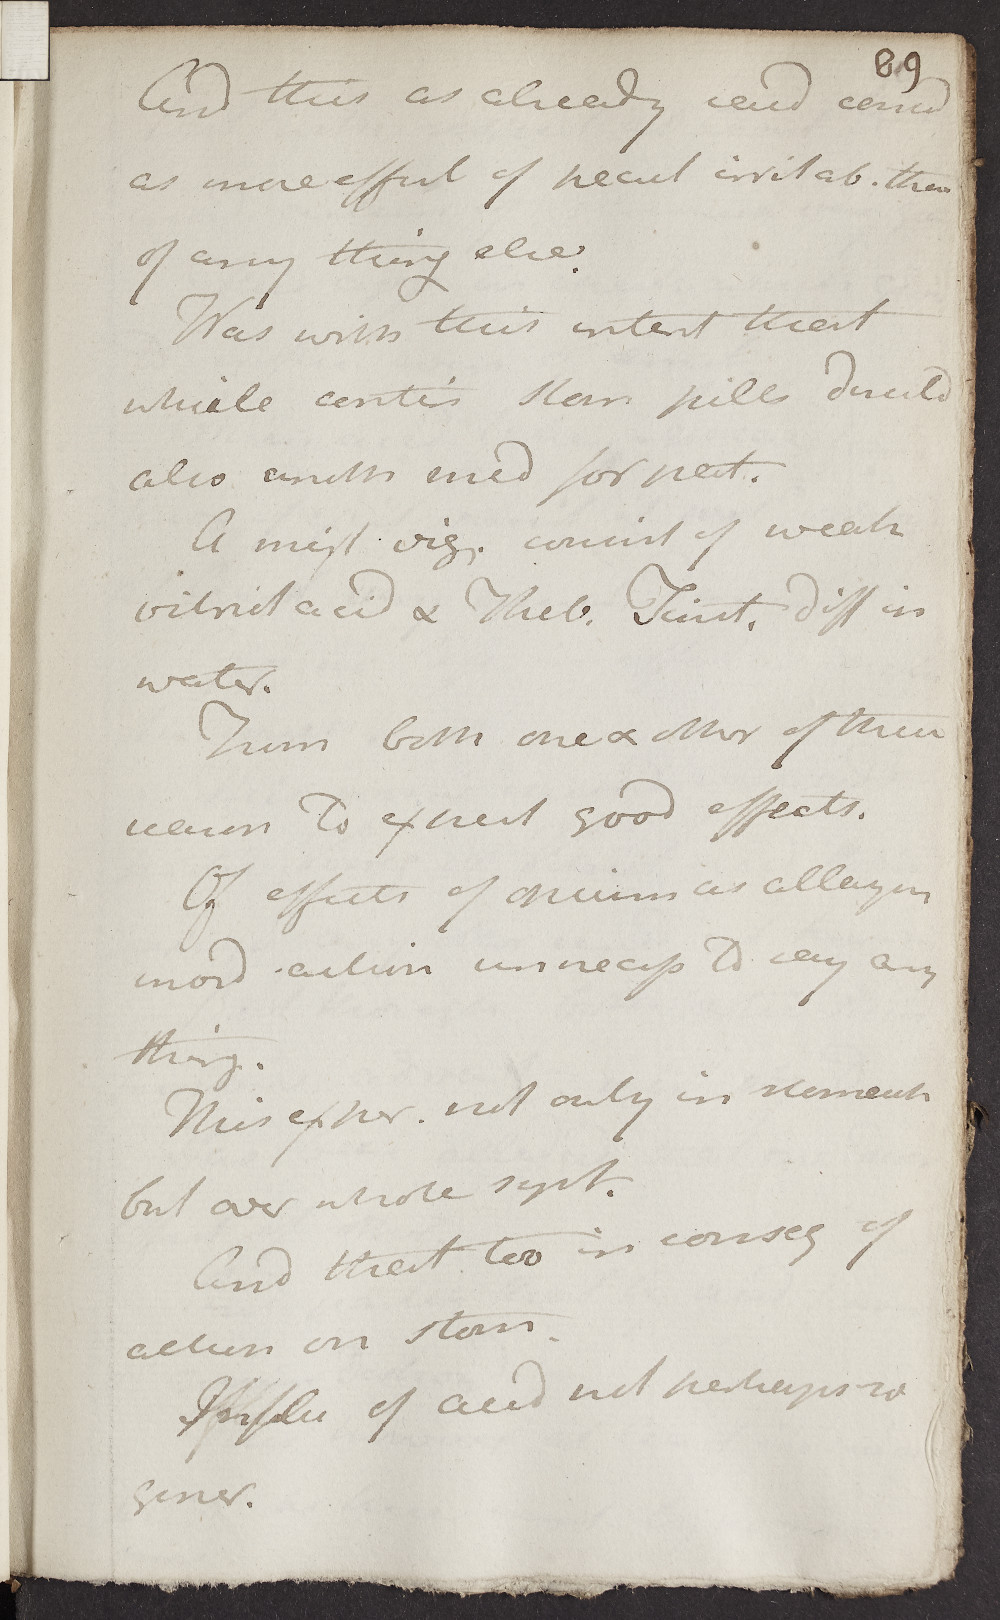 89
And this as already said consid
as more effect of pecul irritab. than
of any thing else.
Was with this intent that
while contin stom pills should
also anoth med for pat.
A mixt vig. consist of weak
vitriol acid & Theb. Tinct. diff in
water.
From both one & other of these
reason to expect good effects.
Of effects of opium as allaying
morb action unnecess to say any
thing.
This exper. not only in stomach
but over whole syst.
And that too in conseq of
action on stom.
of acid not perhaps so
gener.